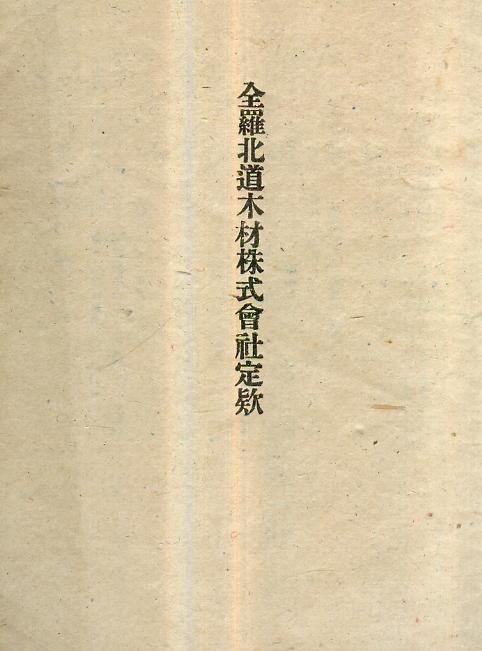 全羅北道木材株式會社定欵